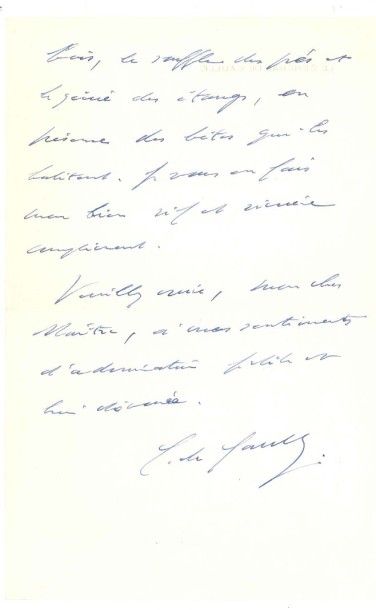 bois, le souffle des prés et
le génie des étangs, en
présence des bêtes qui les
habitent. Je vous en fais
mon bien vif et sincère
compliment.
Veuillez croire, mon cher
Maître, à mes sentiments
d'admiration fidèle et
bien dévouée.
C. de Gaulle.